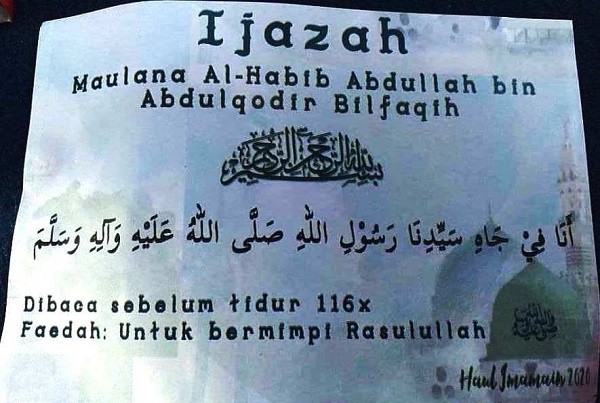 Ijazah
Maulana Al-Habib Abdullah bin
Abdulqodir Bilfaqih
بسم الله الرحمن الرحيم
أَنَا فِيْ جَاهِ سَيِّدِنَا رَسُوْلِ اللهِ صَلَّى اللهُ عَلَيْهِ وَآلِهِ وَسَلَّمَ
Dibaca sebelum tidur 116x
Faedah: Untuk bermimpi Rasulullah
Haul Imamain 2020